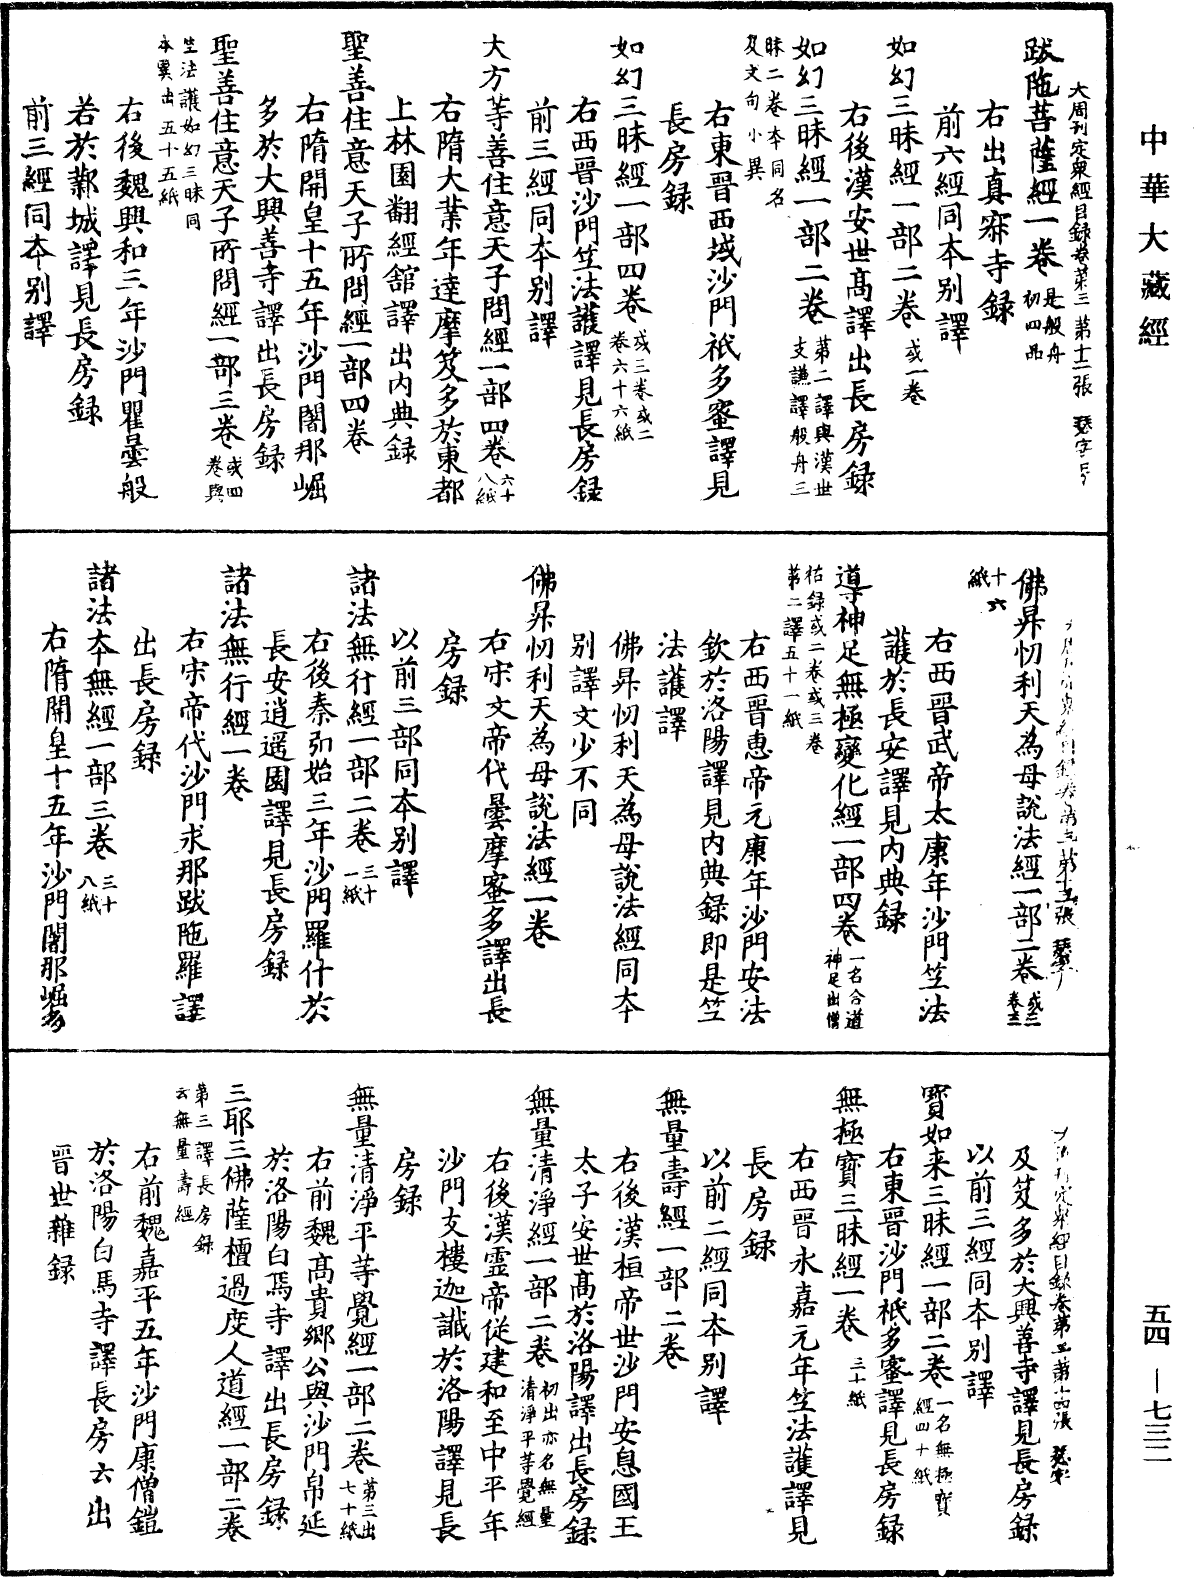 中華大藏經
大周刊定眾經目錄卷第三 第十二張
跋陁菩薩經一卷 是般舟初四品
右出真寂寺錄
前六經同本別譯
如幻三昧經一部二卷 或一卷
右後漢安世高譯出長房錄
如幻三昧經一部二卷 第二譯與漢世支讖譯般舟三
昧二卷本同名及文句小異
右東晉西域沙門祇多蜜譯見
長房錄
如幻三昧經一部四卷 或三卷或二卷六十六紙
右西晉沙門竺法護譯見長房錄
前三經同本別譯
大方等善住意天子問經一部四卷 六十八紙
右隋大業年達摩笈多於東都
上林園翻經舘譯出內典錄
聖善住意天子所問經一部四卷
右隋開皇十五年沙門闍那崛
多於大興善寺譯出長房錄
聖善住意天子所問經一部三卷 或四卷與
竺法護如幻三昧同本異出五十五紙
右後魏興和三年沙門瞿曇般
若於鄴城譯見長房錄
前三經同本別譯
佛昇忉利天為母說法經一部二卷 或三卷
十六紙
右西晉武帝太康年沙門竺法
護於長安譯見內典錄
導神足無極變化經一部四卷 一名合道神足出僧
祐錄或二卷或三卷第二譯五十一紙
右西晉惠帝元康年沙門安法
欽於洛陽譯見內典錄即是竺
法護譯
佛昇忉利天為母說法經同本
別譯文少不同
佛昇忉利天為母說法經一卷
右宋文帝代曇摩蜜多譯出長
房錄
以前三部同本別譯
諸法無行經一部二卷 三十一紙
右後秦弘始三年沙門羅什於
長安逍遥園譯見長房錄
諸法無行經一卷
右宋帝代沙門求那跋陁羅譯
出長房錄
諸法本無經一部三卷 三十八紙
右隋開皇十五年沙門闍那崛多
及笈多於大興善寺譯見長房錄
以前三經同本別譯
寶如來三昧經一部二卷 一名無極寶經四十紙
右東晉沙門祇多蜜譯見長房錄
無極寶三昧經一卷 三十紙
右西晉永嘉元年竺法護譯見
長房錄
以前二經同本別譯
無量壽經一部二卷
右後漢桓帝世沙門安息國王
太子安世高於洛陽譯出長房錄
無量清淨經一部二卷 初出亦名無量清淨平等覺經
右後漢靈帝從建和至中平年
沙門支樓迦讖於洛陽譯見長
房錄
無量清淨平等覺經一部二卷 第三出七十紙
右前魏高貴鄉公與沙門帛延
於洛陽白馬寺譯出長房錄
三耶三佛薩檀過度人道經一部二卷
第三譯長房錄云無量壽經
右前魏嘉平五年沙門康僧鎧
於洛陽白馬寺譯長房云出
晉世雜錄
五四—七三二